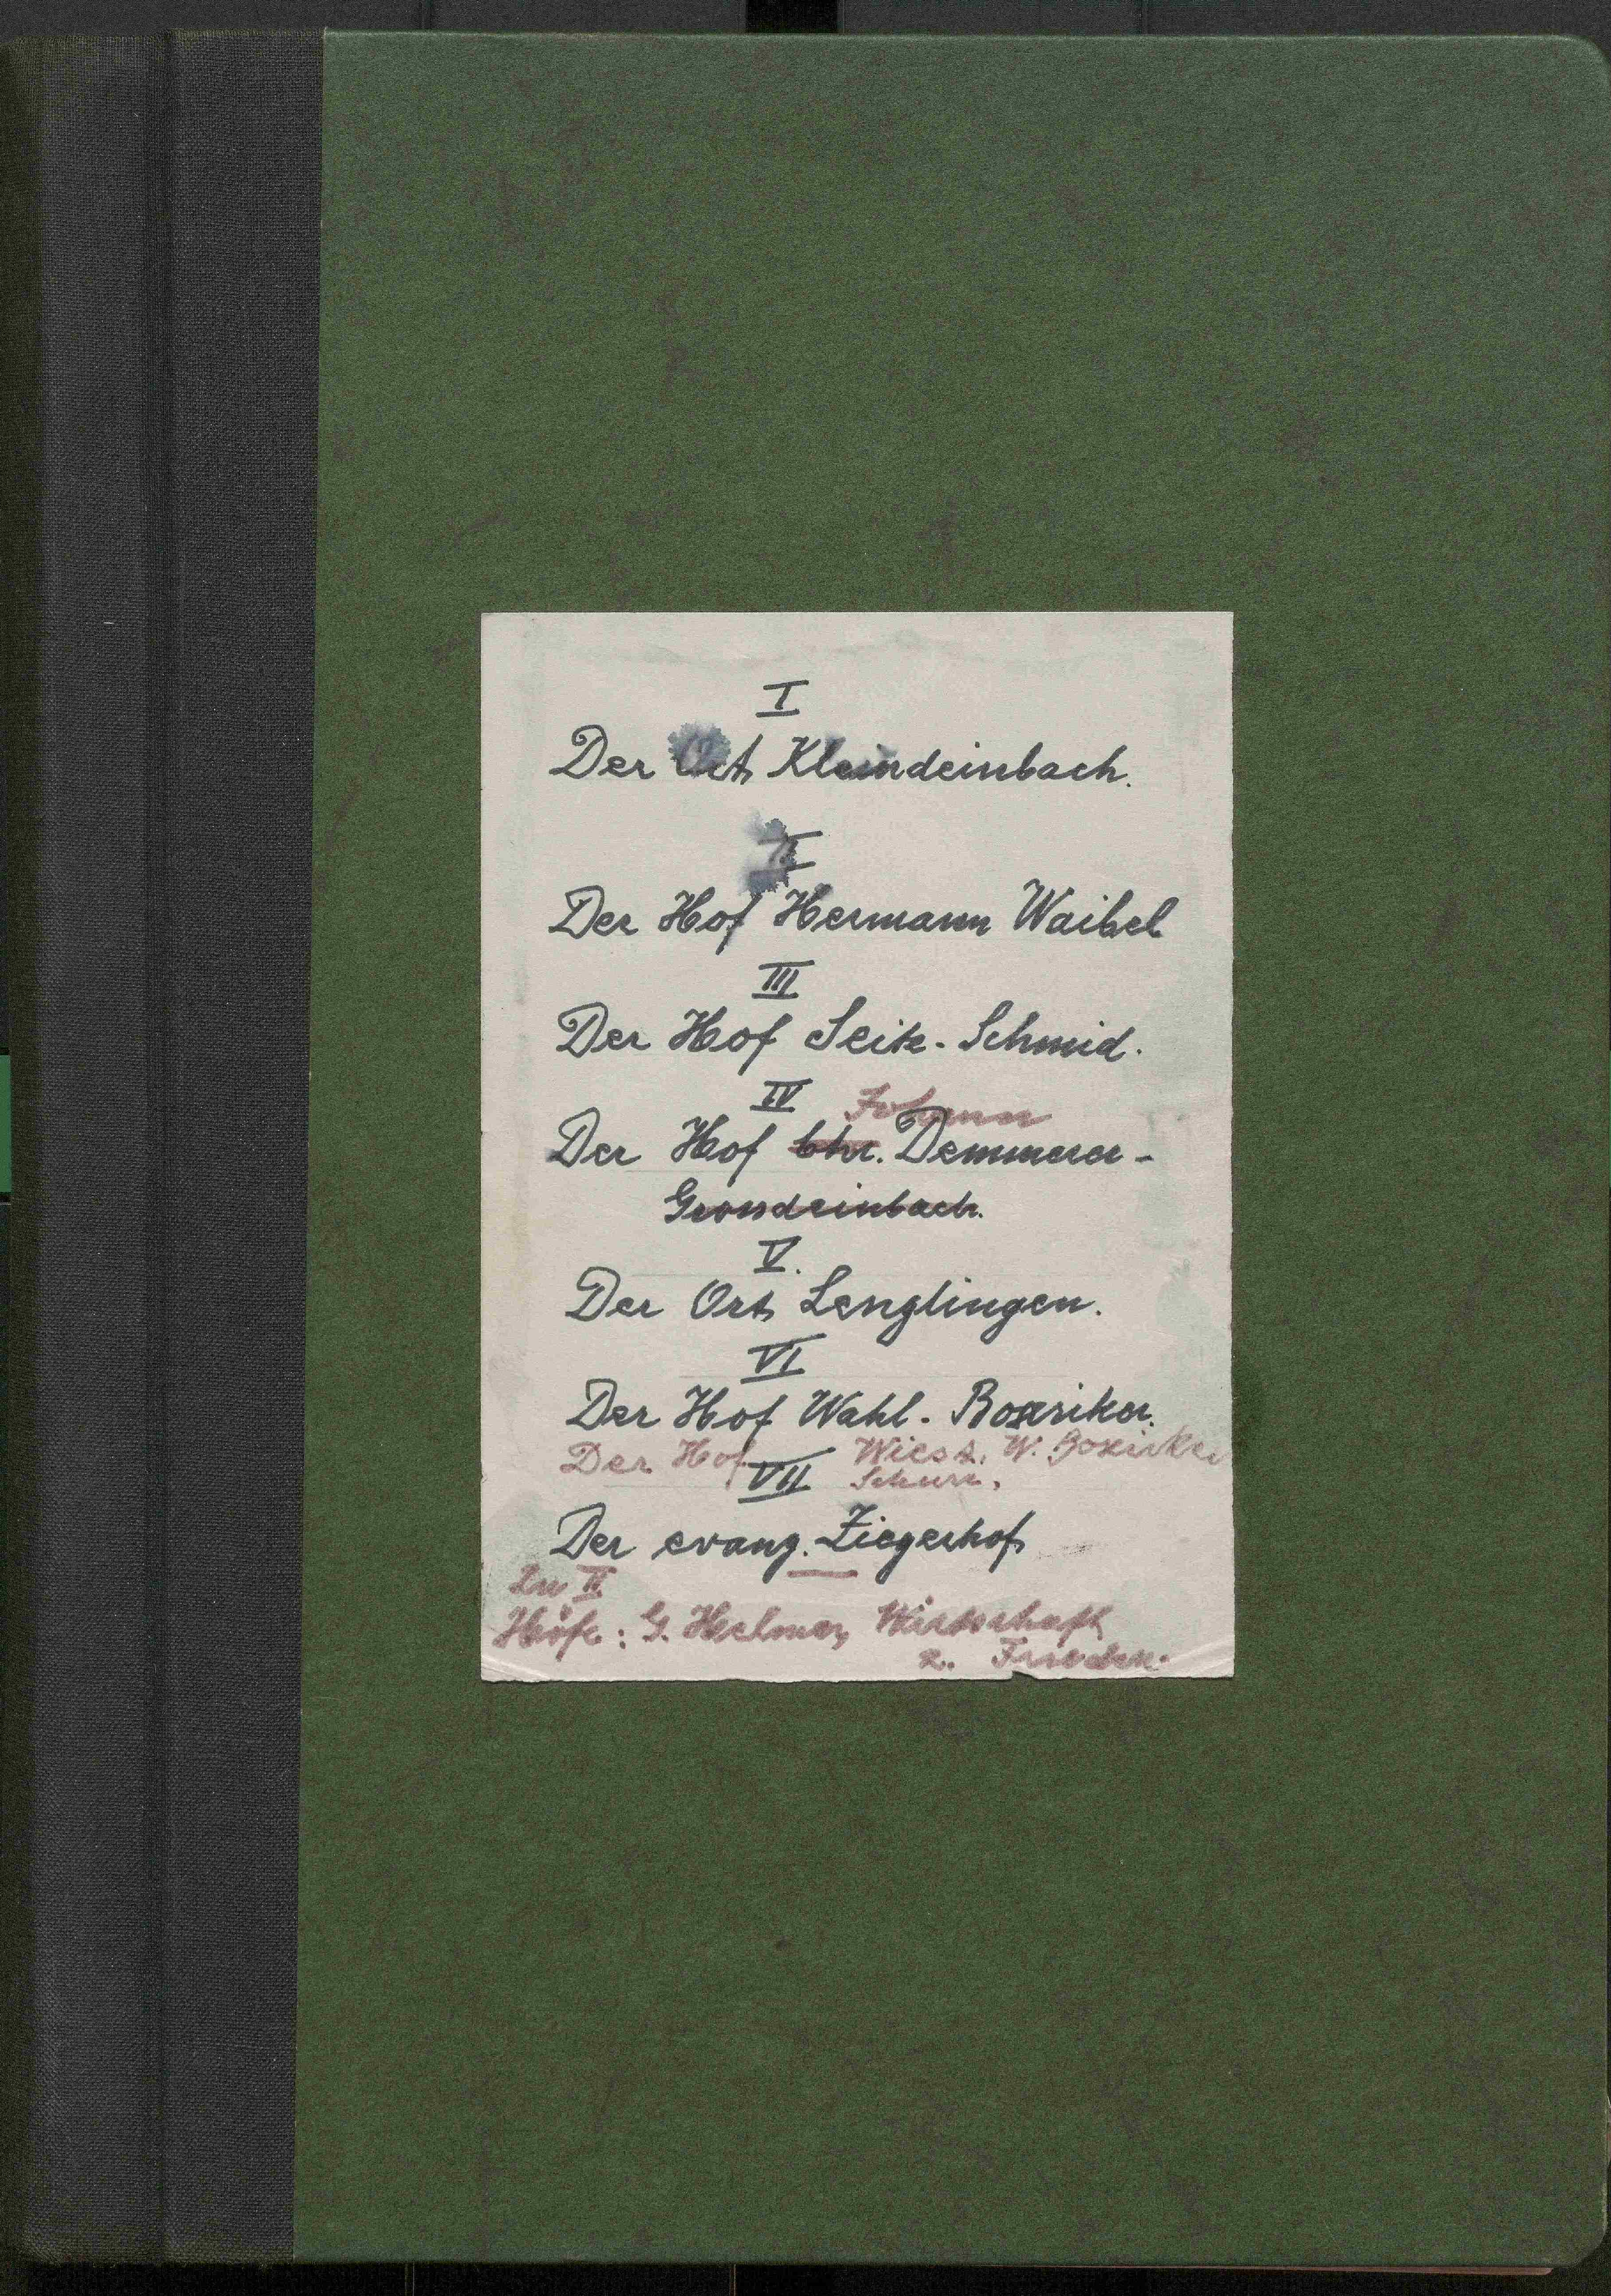 I
Der Ort Kleindeinbach.
II
Der Hof Hermann Waibel
III
Der Hof Seitz-Schmid.
IV Johann
Der Hof Chr. Demmerer-
Grossdeinbach.
V.
Der Ort Lenglingen.
VI
Der Hof Wahl-Boxriker.
Der Hof Wiest. W. Boxriker
VII Schurr.
Der evang. Ziegerhof
Zu II
Höfe: G. Helmer, Wirtschaft
z. Frieden.